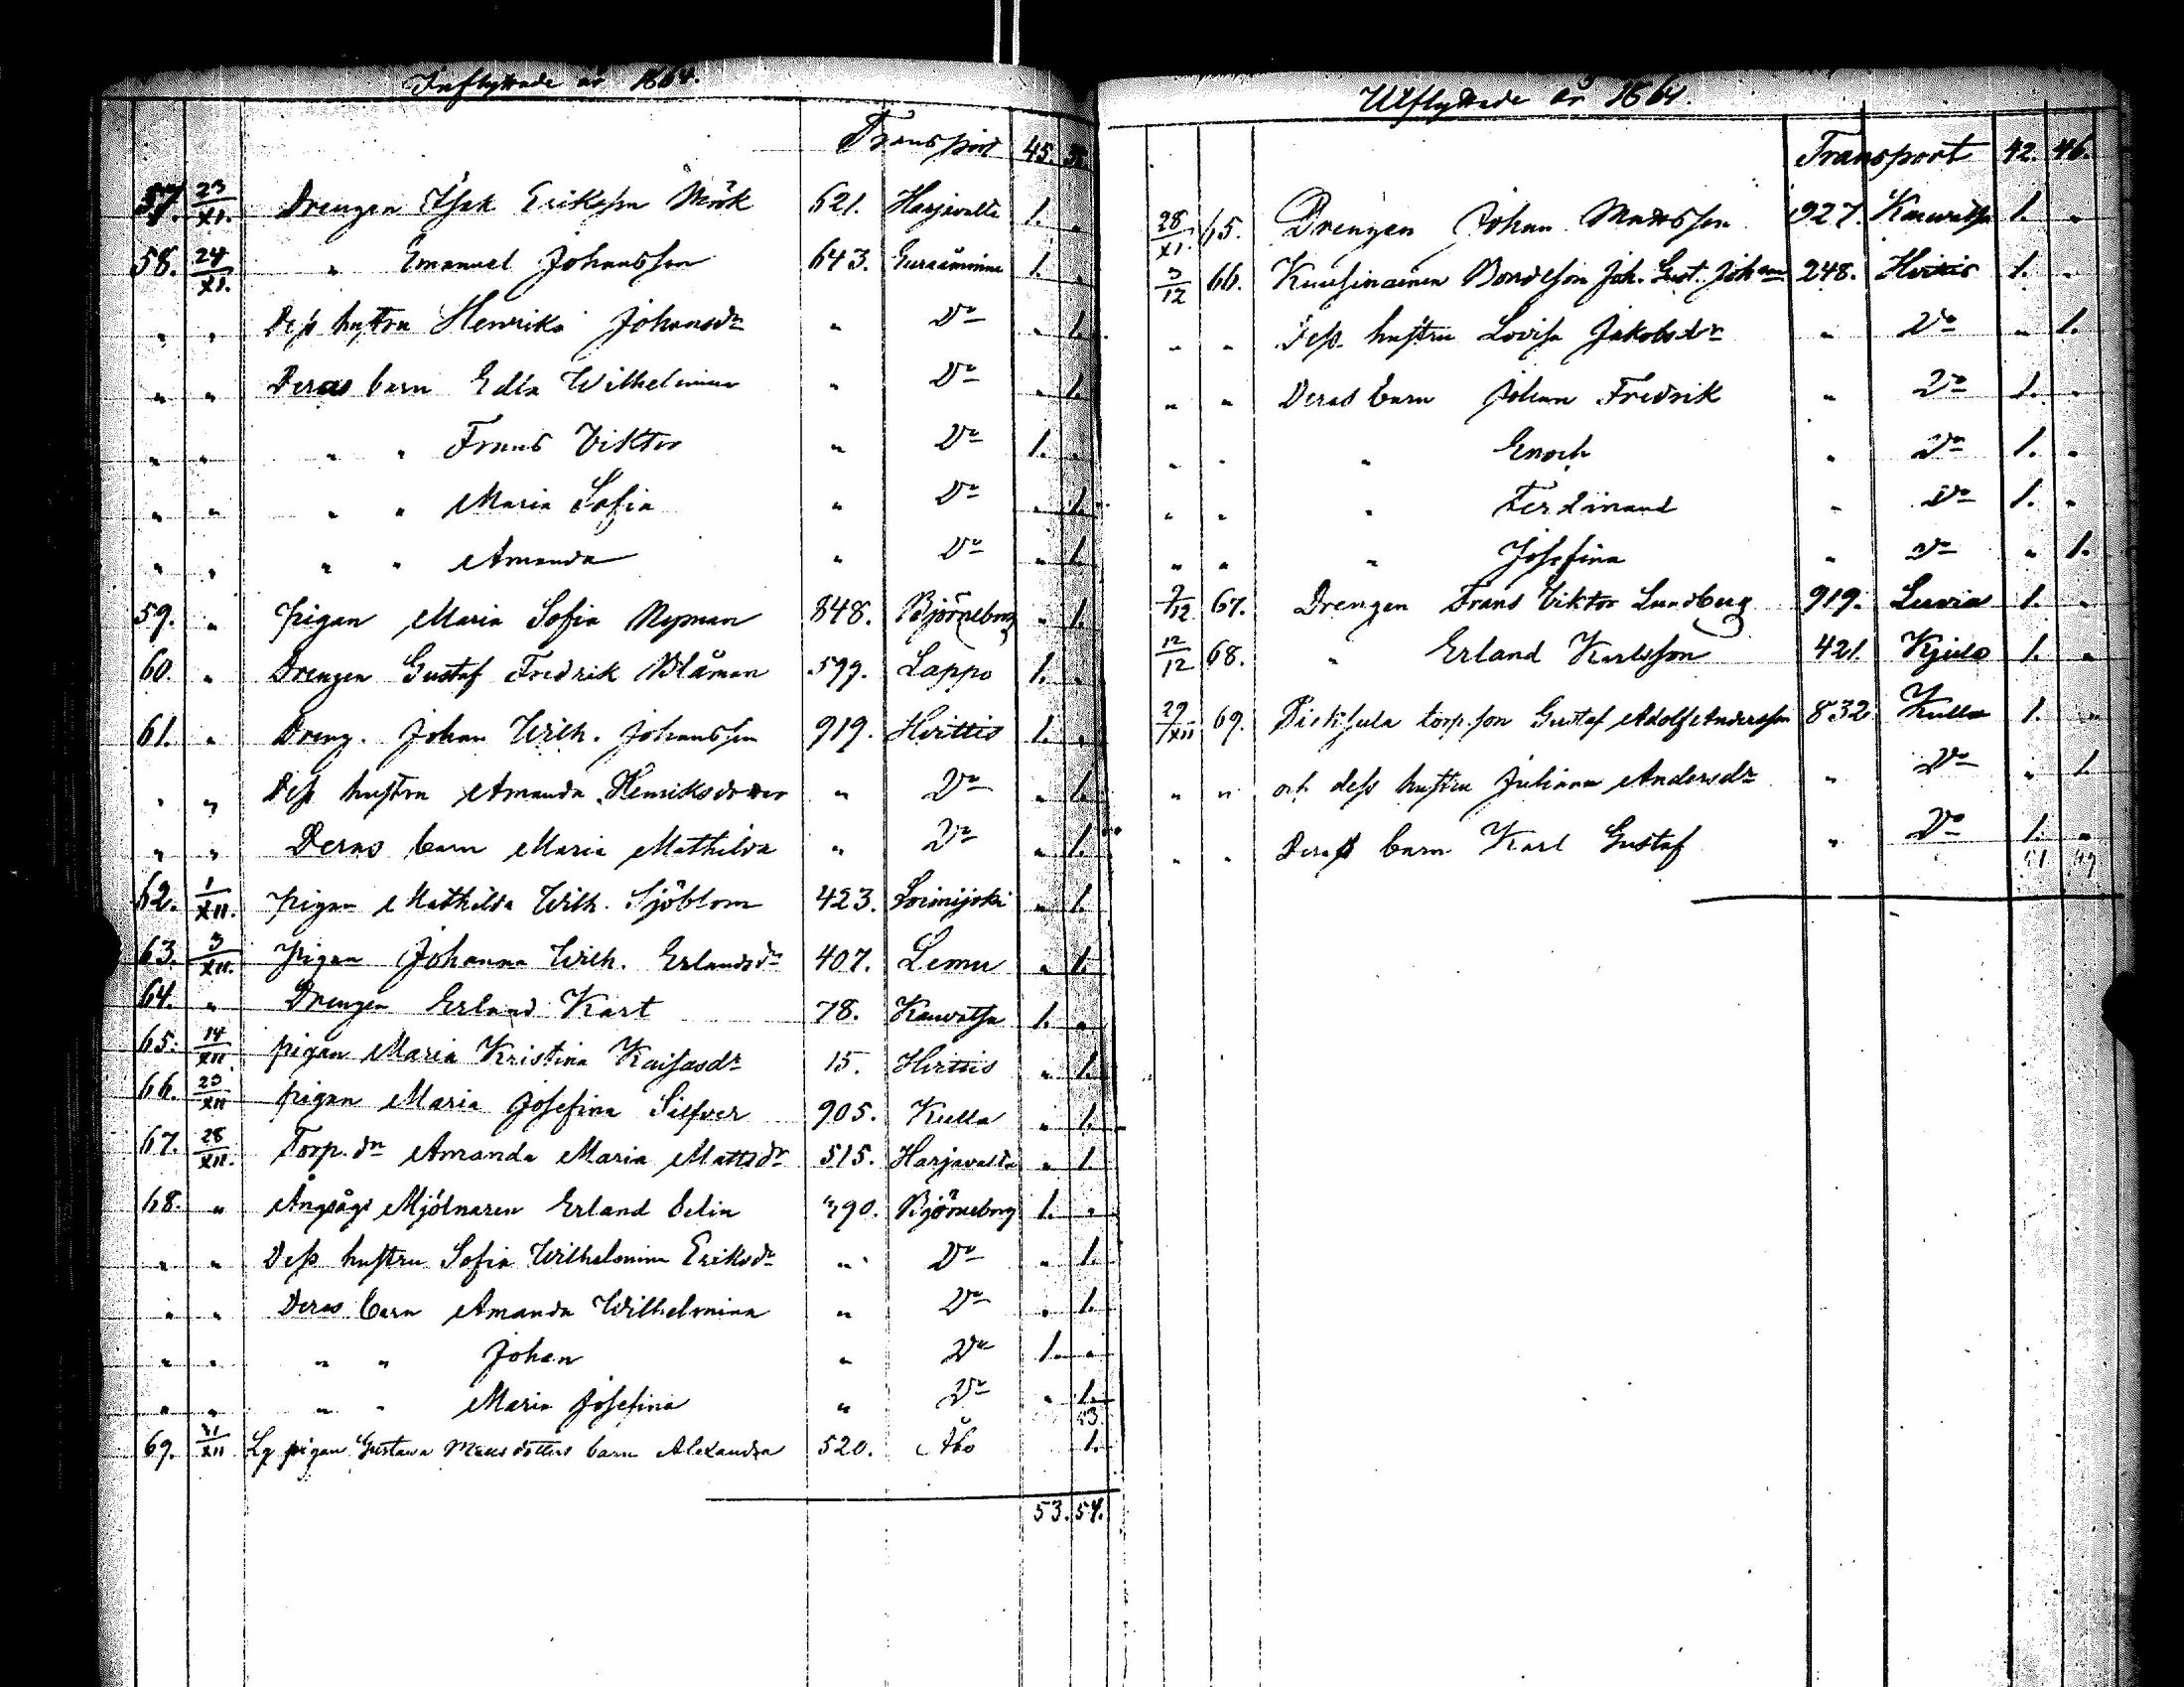 Inflyttade år 1864.
Transport 45.
57. 23/XI. Drengen Isak Eriksson Mörk 621. Harjavalta 1. "
58. 24/XI. " Emanuel Johansson 643. Euraåminne 1. "
" " Dess hustru Henrika Johansdr " Do " 1.
" " Deras barn Edla Wilhelmina " Do " 1.
" " " " Frans Viktor " Do 1. "
" " " " Maria Sofia " Do " 1.
" " " " Amanda " Do " 1.
59. " pigan Maria Sofia Nyman 848. Björneborg " 1.
60. " Drengen Gustaf Fredrik Blåman 599. Lappo 1. "
61. " Dreng. Johan Wilh. Johansson 919. Hvittis 1. "
" " Dess hustru Amanda Henriksdotter " Do " 1.
" " Deras barn Maria Mathilda " Do " 1.
62. 1/XII. pigan Mathilda Wilh. Sjöblom 423. Loimijoki " 1.
63. 3/XII. pigan Johanna Wilh. Erlandsdr 407. Lemu " 1.
64. " Drengen Erland Kart 78. Kauvatsa 1. "
65. 14/XII pigan Maria Kristina Kaisasdr 15. Hvittis " 1.
66. 23/XII pigan Maria Josefina Silfver 905. Kulla " 1.
67. 28/XII. Torp.dr Amanda Maria Mattsdr 515. Harjavalta " 1.
68. " Ångsågs Mjölnaren Erland Selin 390. Björneborg 1. "
" " Dess hustru Sofia Wilhelmina Eriksdr " Do " 1.
" " Deras barn Amanda Wilhelmina " Do " 1.
" " " " Johan " Do 1. "
" " " " Maria Josefina " Do " 1.
53
69. 31/XII Lg pigan Gustava dotters barn Alexandra 520. Åbo 1.
53. 54.
Utflyttade år 1864.
Transport 42. 46.
28/XI 65. Drengen Johan Mattsson 927. Kauvatsa 1. "
3/12 66. Kuusinainen Bondeson Joh. Gust. Johansson 248. Hvittis 1. "
" " Dess hustru Lovisa Jakobsdr " Do " 1.
" " Deras barn Johan Fredrik " Do 1. "
" " " Enoch " Do 1. "
" " " Ferdinand " Do 1. "
" " " Josefina " Do " 1.
7/12 67. Drengen Frans Viktor Lundberg 919. Luvia 1. "
12/12 68. " Erland Karlsson 421. Kjulo 1. "
29/XII 69. torp.son Gustaf Adolf Andersson 832 Kulla 1. "
" " och dess hustru Juliana Andersdr " Do " 1
" " Deras barn Karl Gustaf " Do 1. "
51 49